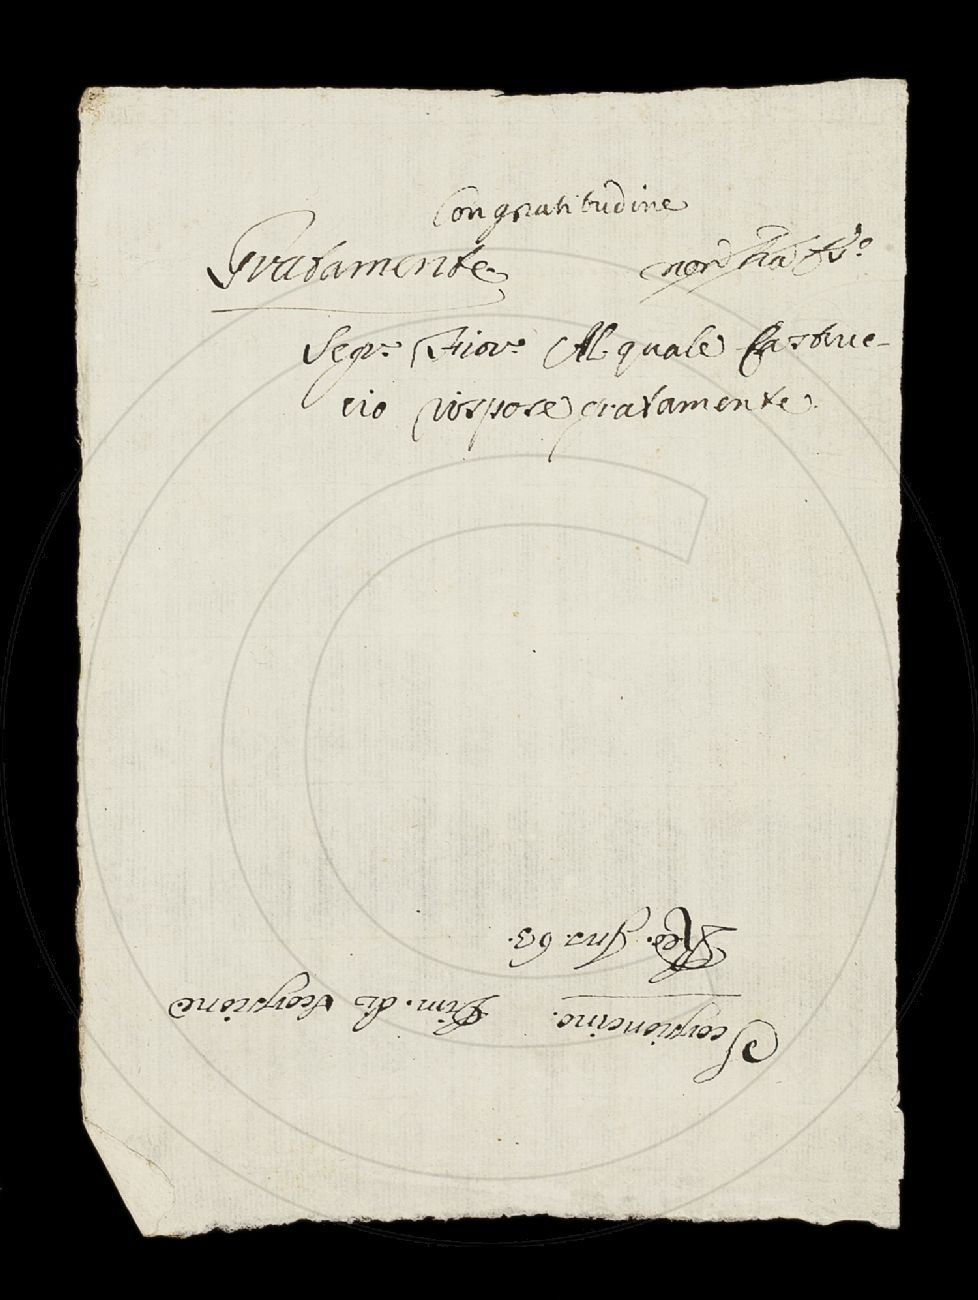 Con gratitudine
Gratamente.
Segr. Fior. Al quale Castruc-
cio rispose gratamente.
Scorpioncino. Dim. di Scorpione
Red. Ins. 63.